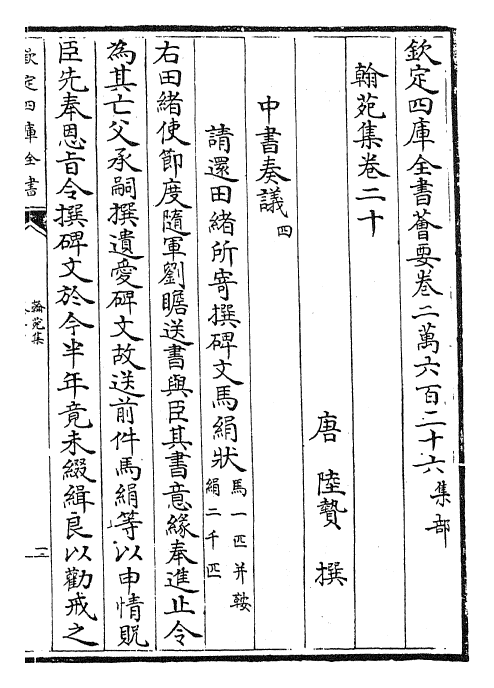 欽定四庫全書薈要卷二萬六百二十六集部
翰苑集卷二十
唐 陸贄 撰
中書奏議四
請還田緒所寄撰碑文馬絹狀馬一匹并鞍絹二千匹
右田緒使節度隨軍劉瞻送書與臣其書意緣奉進止令
為其亡父承嗣撰遺愛碑文故送前件馬絹等以申情貺
臣先奉恩旨令撰碑文於今半年竟未綴緝良以勸戒之
欽定四庫全書
翰苑集